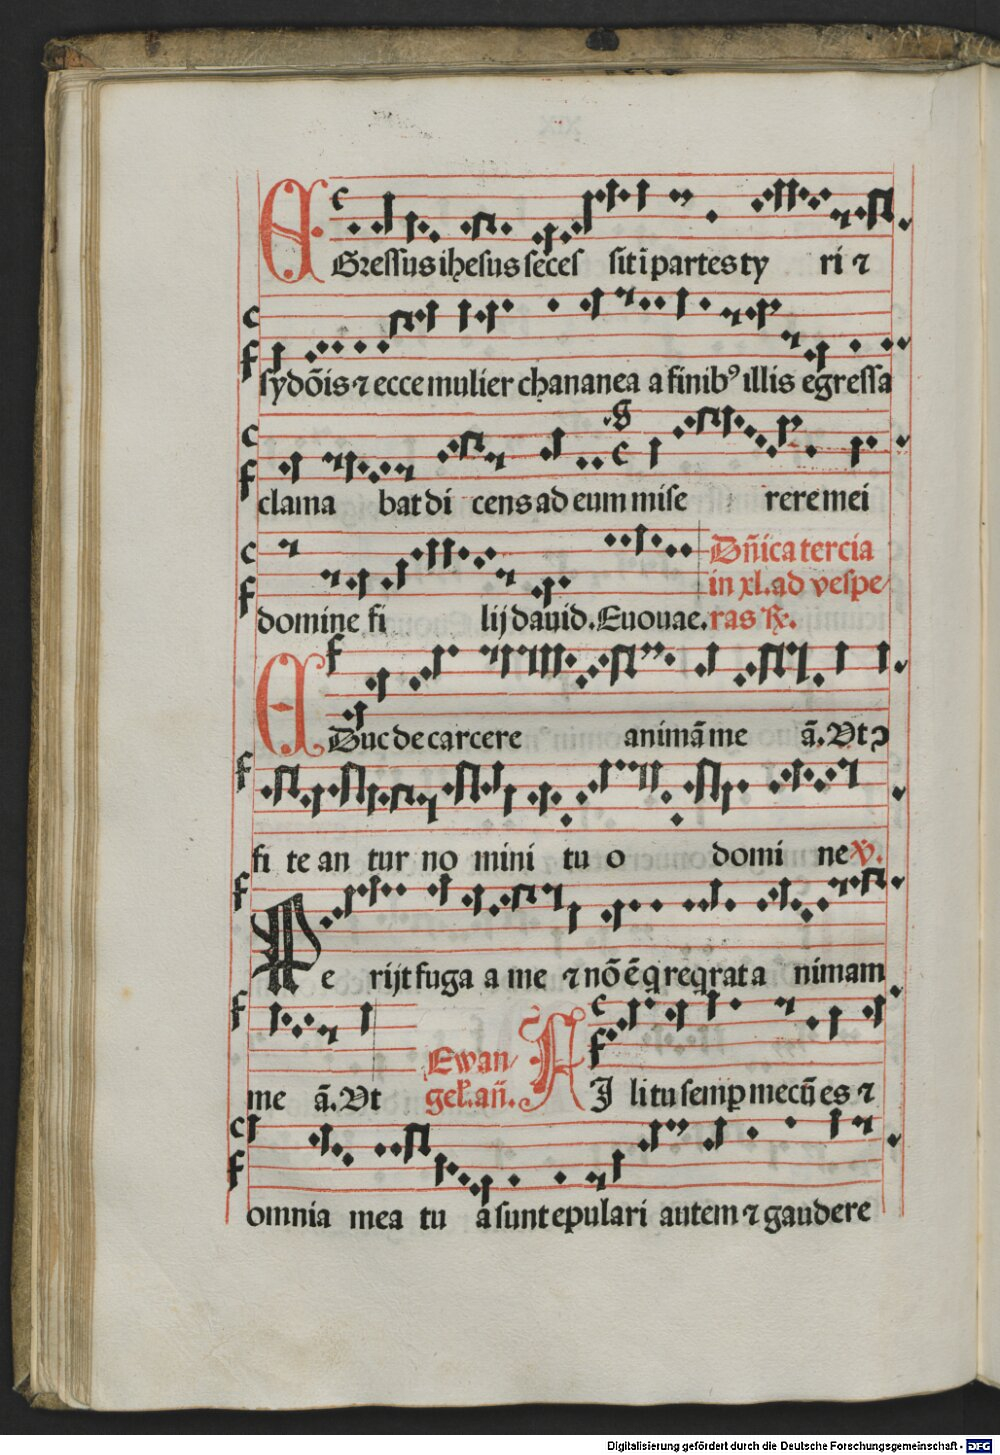 EGressus ihesus seces sit ī partes ty ri ⁊
sydōis ⁊ ecce mulier chananea a finibꝰ illis egressa
clama bat di cens ad eum mise rere mei
domine fi lij dauid. Euouae. Dn̄ica tercia
in xl. ad vespe/
ras R̸.
EDuc de carcere animā me ā. Vt ꝯ
fi te an tur no mini tu o domi ne V̸.
Pe rijt fuga a me ⁊ nō ē q reqrat a nimam
me ā. Vt Ewan/
gel. an̄. FIli tu semꝑ mecū es ⁊
omnia mea tu a sunt epulari autem ⁊ gaudere
Digitalisierung gefördert durch die Deutsche Forschungsgemeinschaft - DFG